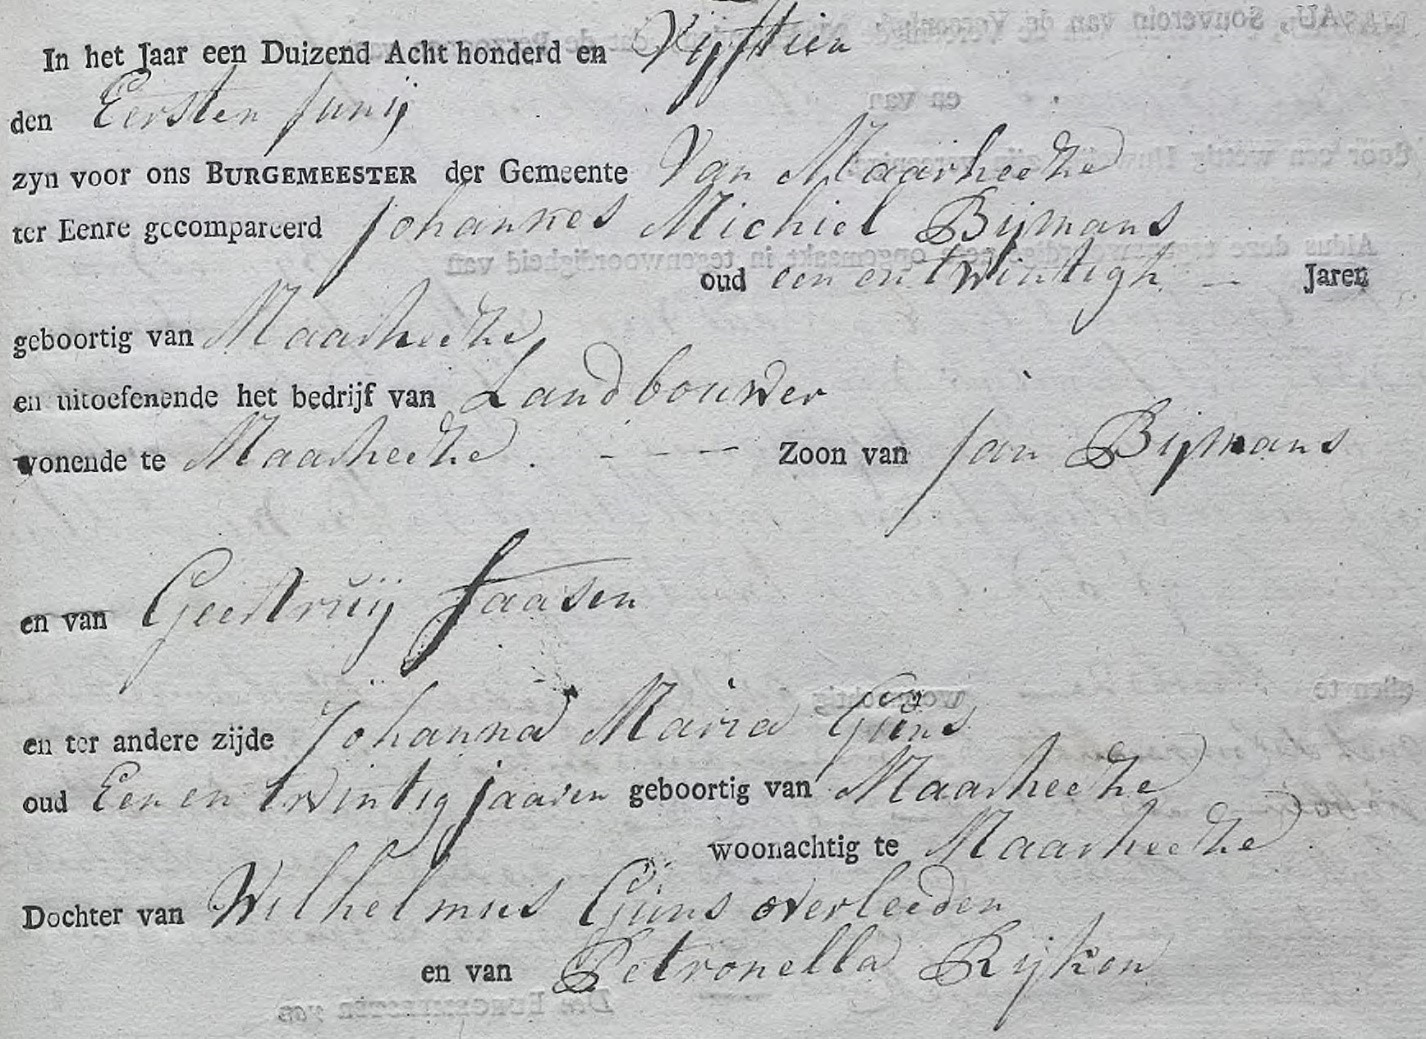 In het Jaar een Duizend Acht honderd en Vijftien
den Eersten Junij
zyn voor ons BURGEMEESTER der Gemeente Van Maarheeze
ter Eenre gecompareerd Johannes Michiel Bijmans
oud een en twintigh Jaren
geboortig van Maarheeze
en uitoefenende het bedrijf van Landbouwer
wonende te Maarheeze . - - - Zoon van Jan Bijmans
en van Geertruij Faasen
en ter andere zijde Johanna Maria
oud Een en twintig jaaren geboortig van Maarheeze
woonachtig te Maarheeze
Dochter van Wilhelmus overleeden
en van Petronella Rijken